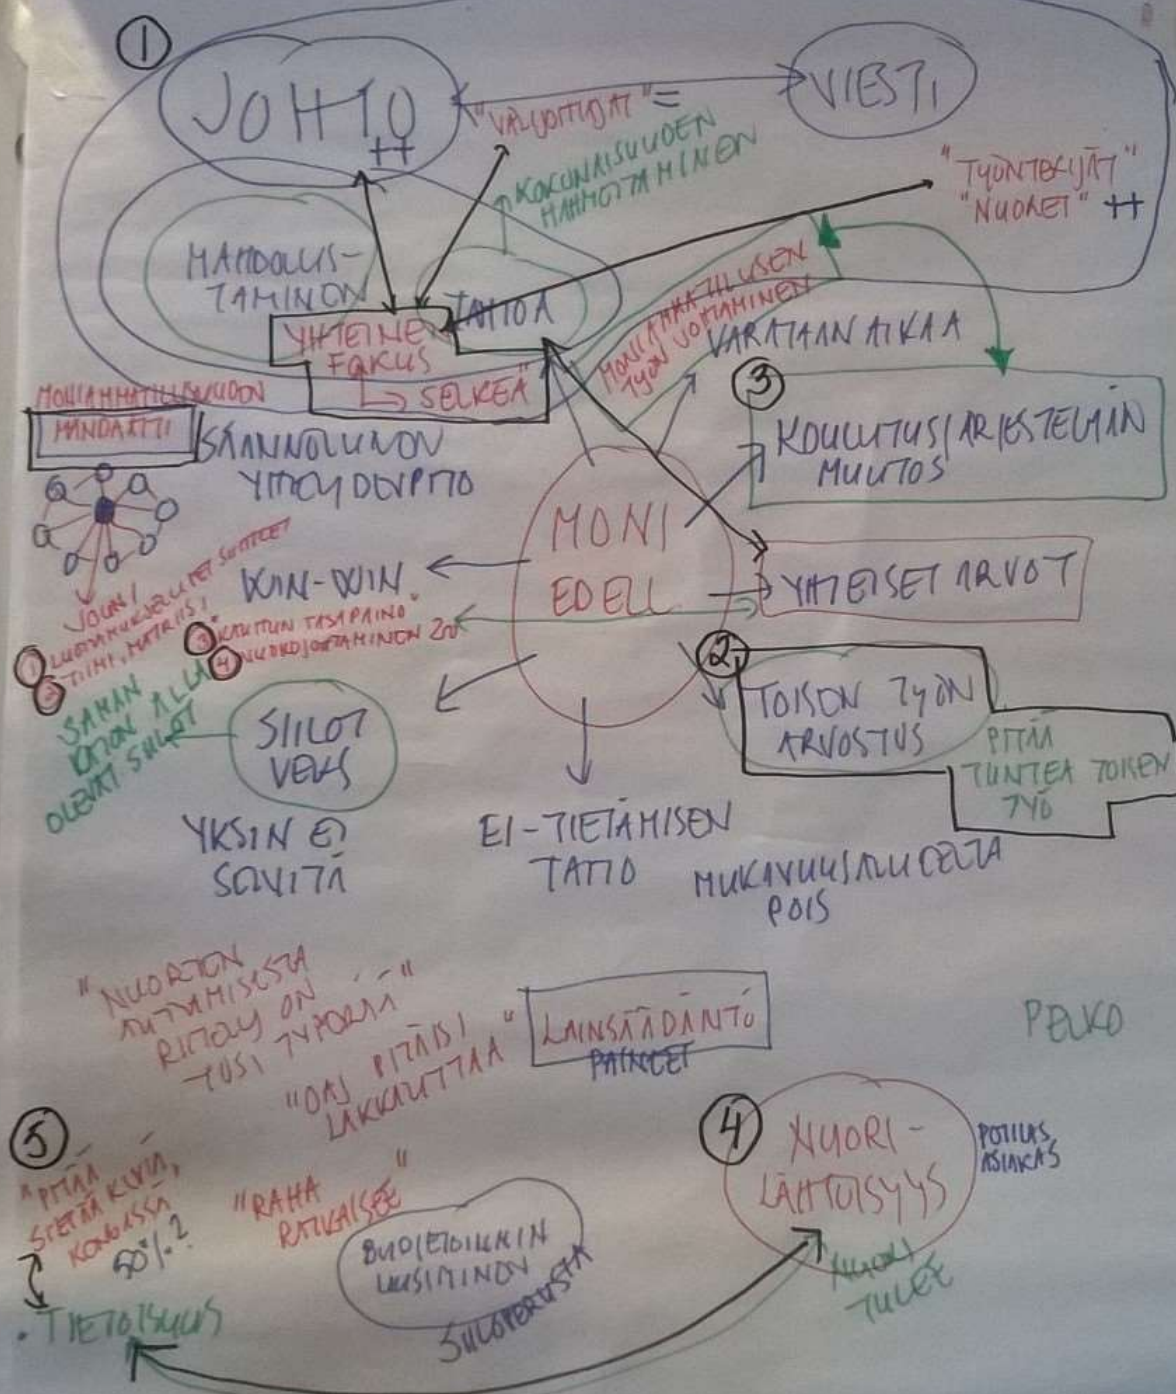 1
JOHTO
++
VIESTI
"VÄLJOHTAJAT" =
KOKONAISUUDEN
HAHMOTTAMINEN
"TYÖNTEKIJÄT"
"NUORET" ++
MAHDOLLIS-
TAMINEN
TAHTOA
YHTEINE
FOKUS
SELKEÄ
MONIAMMATILLISEN
TYÖN JOHTAMINEN
VARATAAN AIKAA
MONIAMMATILLISUUDEN
MANDAATTI
SÄÄNNÖLLINEN
YHTEYDENPITO
3
KOULUTUSJÄRJESTELMÄN
MUUTOS
MONI
EDELL.
WIN-WIN
YHTEISET ARVOT
1 LUOTTAMUKSELLISET SUHTEET
2 TIIMI, MATRIISI
3 TASAPAINO
4
SAMAN
KATON ALLA
OLEVAT SIILOT
SIILOT
VEKS
2
TOISEN TYÖN
ARVOSTUS
PITÄÄ
TUNTEA TOISEN
TYÖ
YKSIN EI
SELVITÄ
EI-TIETÄMISEN
TAITO
MUKAVUUSALUEELTA
POIS
"NUORTEN
AUTTAMISESTA
RIITELY ON
TOSI TYPERÄÄ"
"OAJ PITÄISI
LAKKAUTTAA"
LAINSÄÄDÄNTÖ
PAINEET
PELKO
5
"PITÄÄ
SIETÄÄ KIVIÄ,
KENGÄSSÄ
50%?
TIETOISUUS
"RAHA
RATKAISEE"
BUDJETOINNIN
UUSIMINEN
SIILOPERUSTA
4
NUORI-
LÄHTÖISYYS
POTILAS,
ASIAKAS
NUORI
TULEE